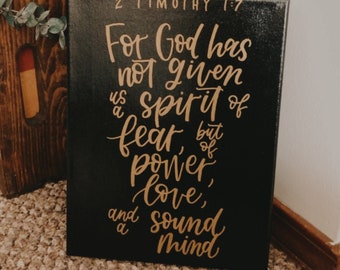 2 TIMOTHY 1:7
For God has
not given
us a spirit of
fear, but of
power,
love,
and a sound
mind